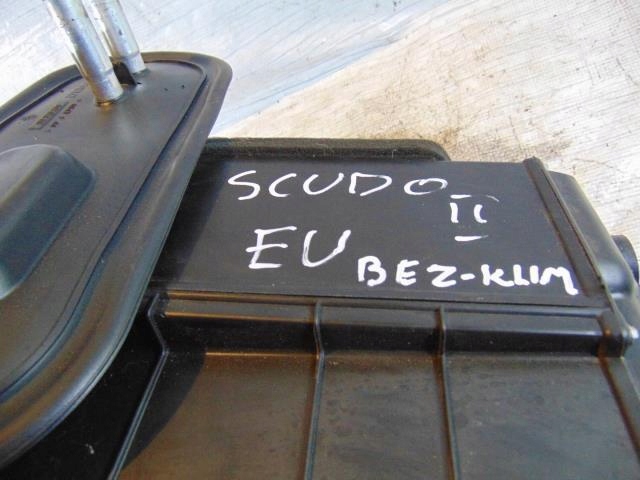 SCUDO II
EU BEZ-KLIM